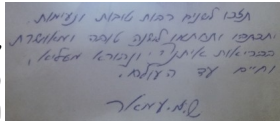 תזכו לשנים רבות טובות ונעימות
תכתבו ותחתמו לשנה טובה ומאושרת
בבריאות איתנה, ונהורא מעליא,
וחיים עד העולם.
ש.מ. עמאר